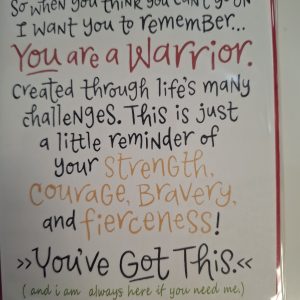 So when you think you can't go on
I want you to remember...
You are a Warrior.
Created through life's many
challenges. This is just
a little reminder of
your strength,
courage, Bravery,
and fierceness!
>>You've Got This.<<
(and i am always here if you need me.)